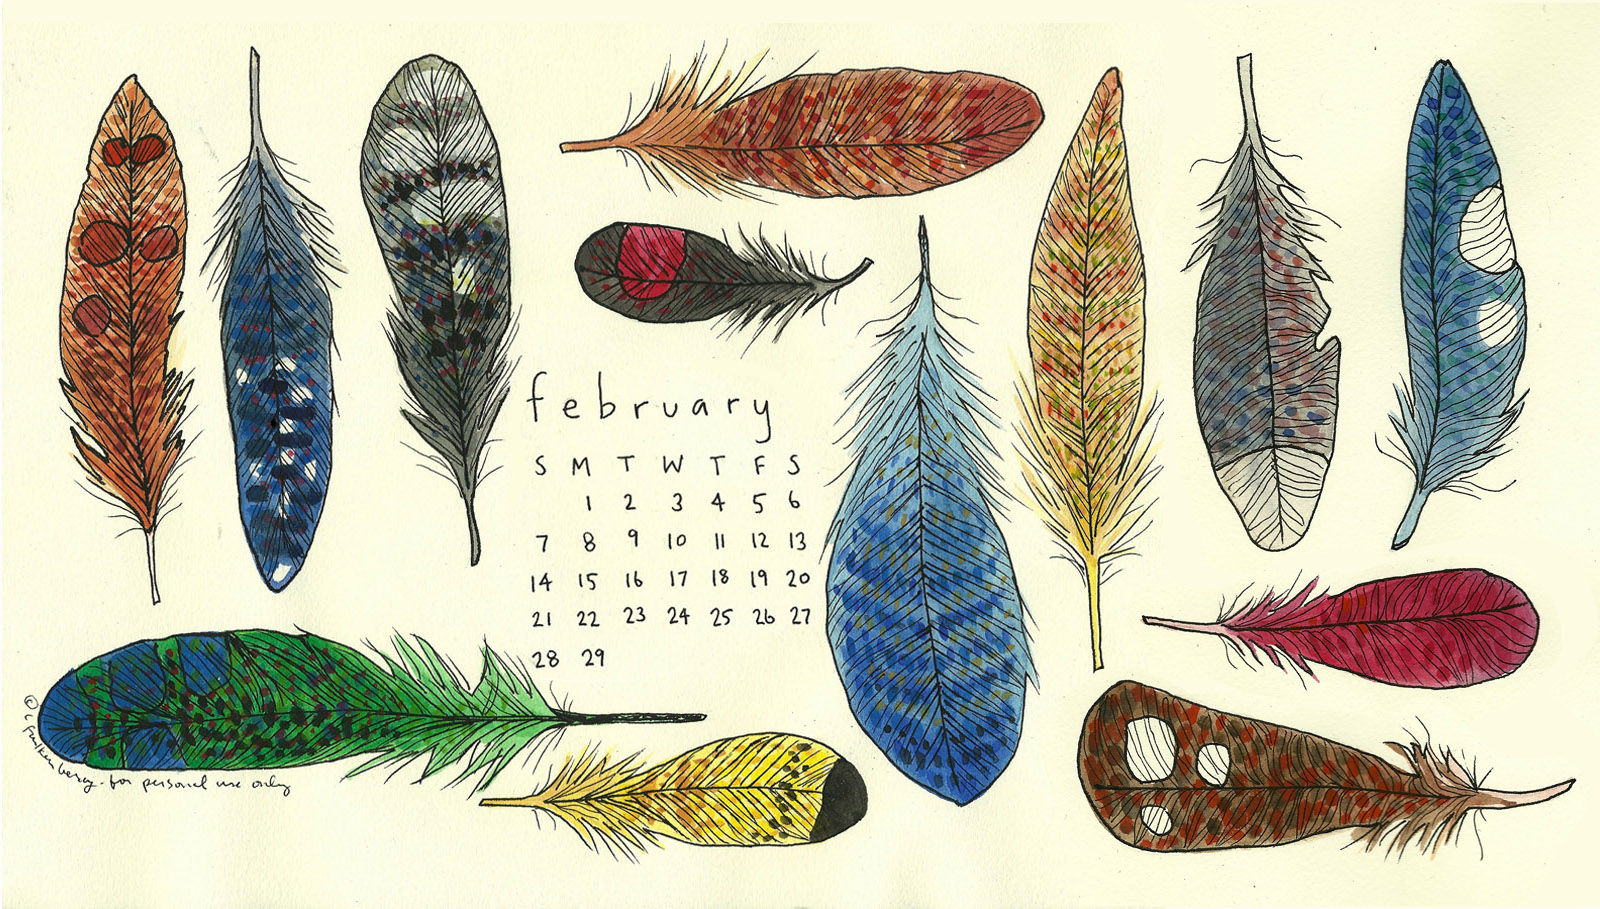 february
S M T W T F S
1 2 3 4 5 6
7 8 9 10 11 12 13
14 15 16 17 18 19 20
21 22 23 24 25 26 27
28 29
© r. Faulkenberry - for personal use only